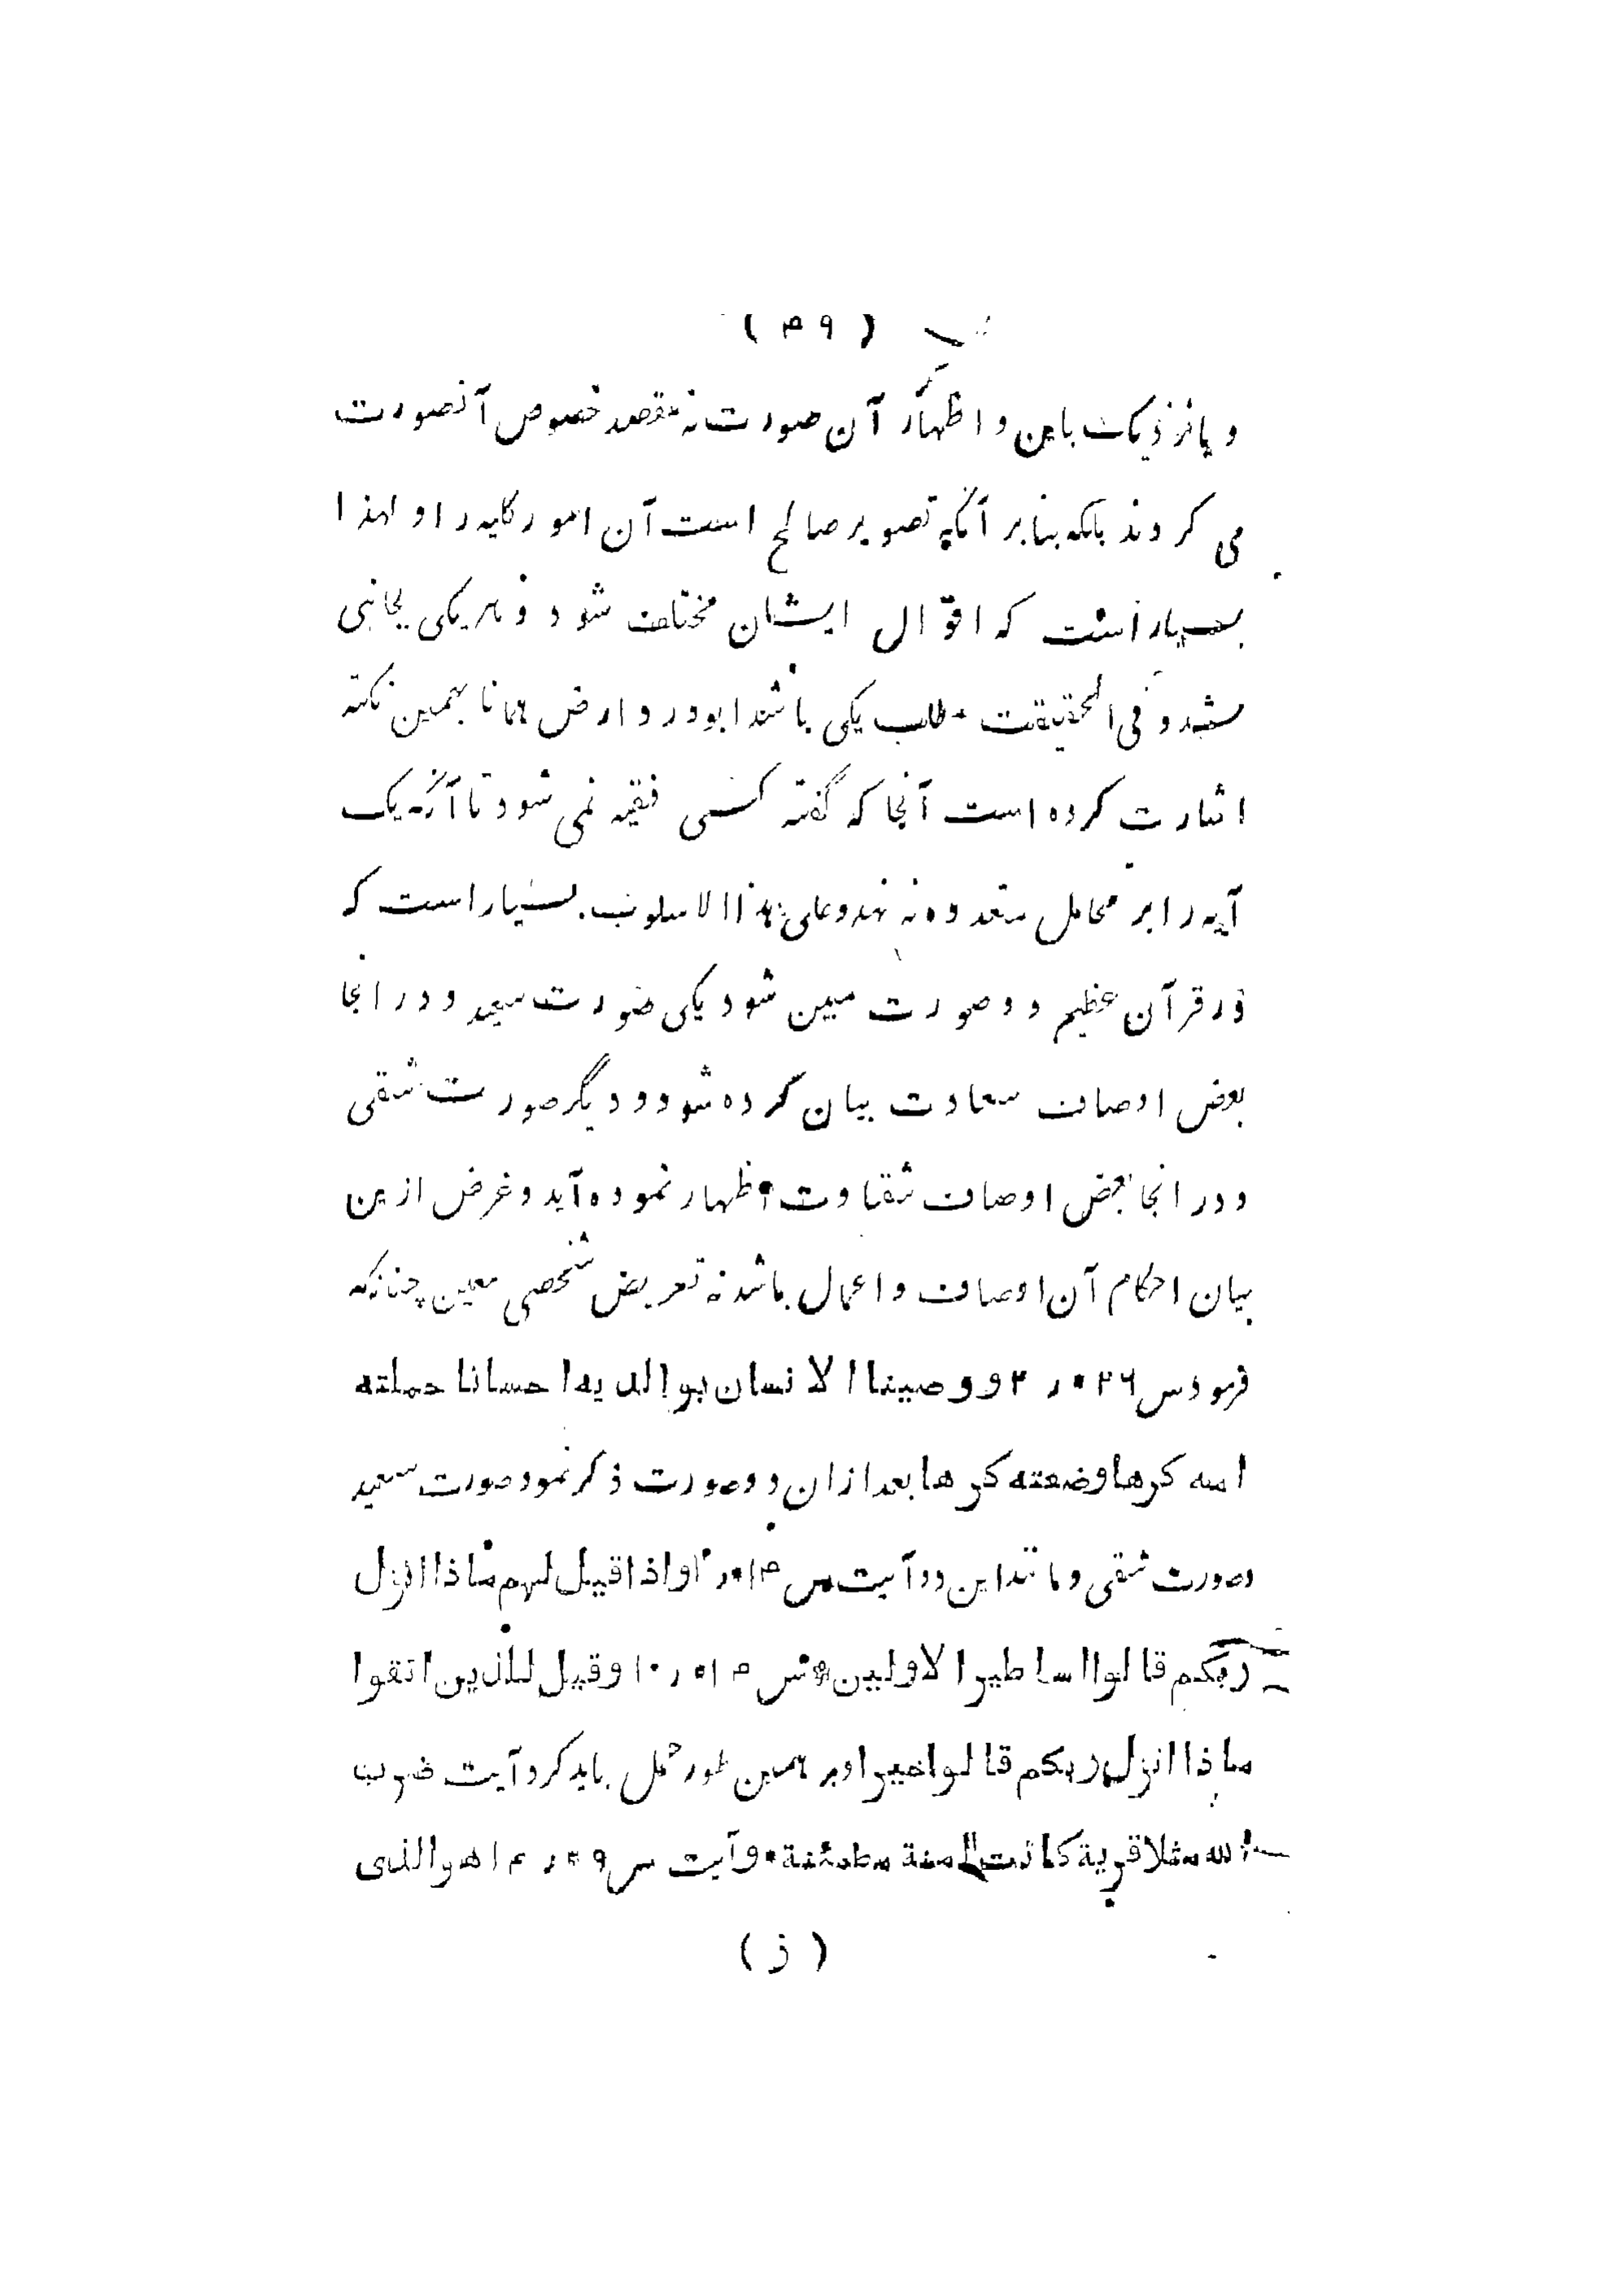 ( ۴۹ )
و یا نزدیک باین و اظهار آن صورت نه بقصد خصوص آنصورت
می کردند بلکه بنا بر آنکه تصویر صالح است آن امور کلیه را و لهذا
بسیار است که اقوال ایشان مختلف شود و هر یکی بجانبی
کشد و فی الحقیقت مطلب یکی باشد ابو درداء رض همانا بهمین نکته
اشارت کرده است آنجا که گفته کسی فقیه نمی شود تا آنکه یک
آیه را بر محامل متعدده نه نهد و علی هذا الاسلوب بسیار است که
در قرآن عظیم دو صورت مبین شود یکی صورت سعید و در انجا
بعض اوصاف سعادت بیان کرده شود و دیگر صورت شقی
و در انجا بعض اوصاف شقاوت اظهار نموده آید و غرض ازین
بیان احکام آن اوصاف و اعمال باشد نه تعریض شخصی معین چنانکه
فرمود س ۲۶ ر ۲ ووصینا الانسان بوالدیه احسانا حملته
امه کرها وضعته کرها بعد ازان دو صورت ذکر نمود صورت سعید
و صورت شقی و مانند این دو آیت س ۱۴ ر ۲ واذا قیل لهم ماذا انزل
ربکم قالوا اساطیر الاولین * س ۱۴ ر ۱۰ وقیل للذین اتقوا
ماذا انزل ربکم قالوا خیرا و بر همین طور حمل باید کرد آیت ضرب
الله مثلا قریة کانت آمنة مطمئنة * و آیت س ۹ ر ۱۴ هو الذی
( ز )